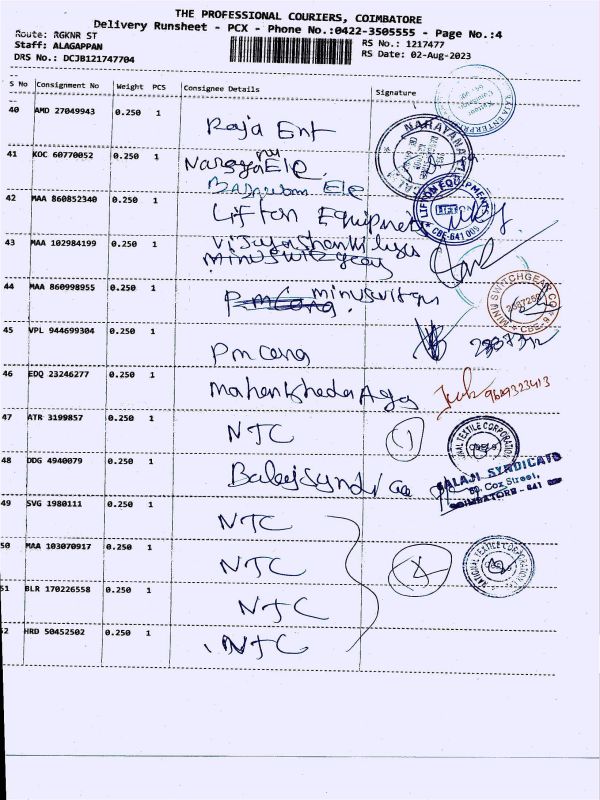 THE PROFESSIONAL COURIERS, COIMBATORE
Delivery Runsheet - PCX - Phone No.:0422-3505555 - Page No.:4
Route: RGKNR ST
RS No.: 1217477
Staff: ALAGAPPAN
RS Date: 02-Aug-2023
DRS No.: DCJB121747704
S No Consignment No Weight PCS Consignee Details Signature
40 AMD 27049943 0.250 1 Raja Ent
NARAYANA
41 KOC 60770052 0.250 1 Ele
Ele
42 MAA 860852340 0.250 1 Lifton Equipment
LIFTON EQUIPMENTS
CBE-641 009
43 MAA 102984199 0.250 1
44 MAA 860998955 0.250 1
MINU SWITCHGEAR CO
CBE
45 VPL 944699304 0.250 1 Pm Cang
46 EDQ 23246277 0.250 1 9689323413
47 ATR 3199857 0.250 1 NTC 1
NATIONAL TEXTILE CORPORATION
48 DDG 4940079 0.250 1
BALAJI SYNDICATE
Coz Street,
COIMBATORE - 641
49 SVG 1980111 0.250 1 NTC
50 MAA 103070917 0.250 1 NTC 4
NATIONAL TEXTILE CORPORATION
51 BLR 170226558 0.250 1 NTC
52 HRD 50452502 0.250 1 NTC